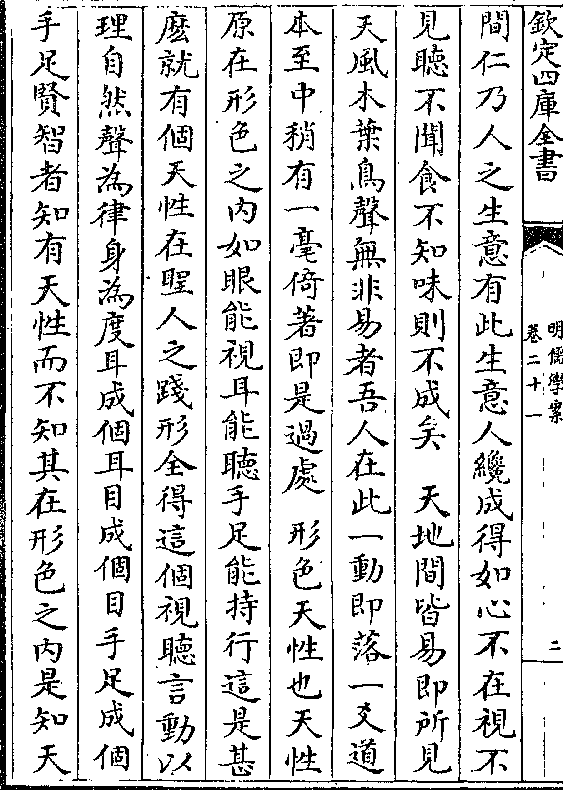 欽定四庫全書
明儒學案
卷二十一
二
間仁乃人之生意有此生意人纔成得如心不在視不
見聽不聞食不知味則不成矣　天地間皆易即所見
天風木葉鳥聲無非易者吾人在此一動即落一爻道
本至中稍有一毫倚著即是過處　形色天性也天性
原在形色之内如眼能視耳能聽手足能持行這是甚
麽就有個天性在聖人之踐形全得這個視聽言動以
理自然聲為律身為度耳成個耳目成個目手足成個
手足賢智者知有天性而不知其在形色之内是知天